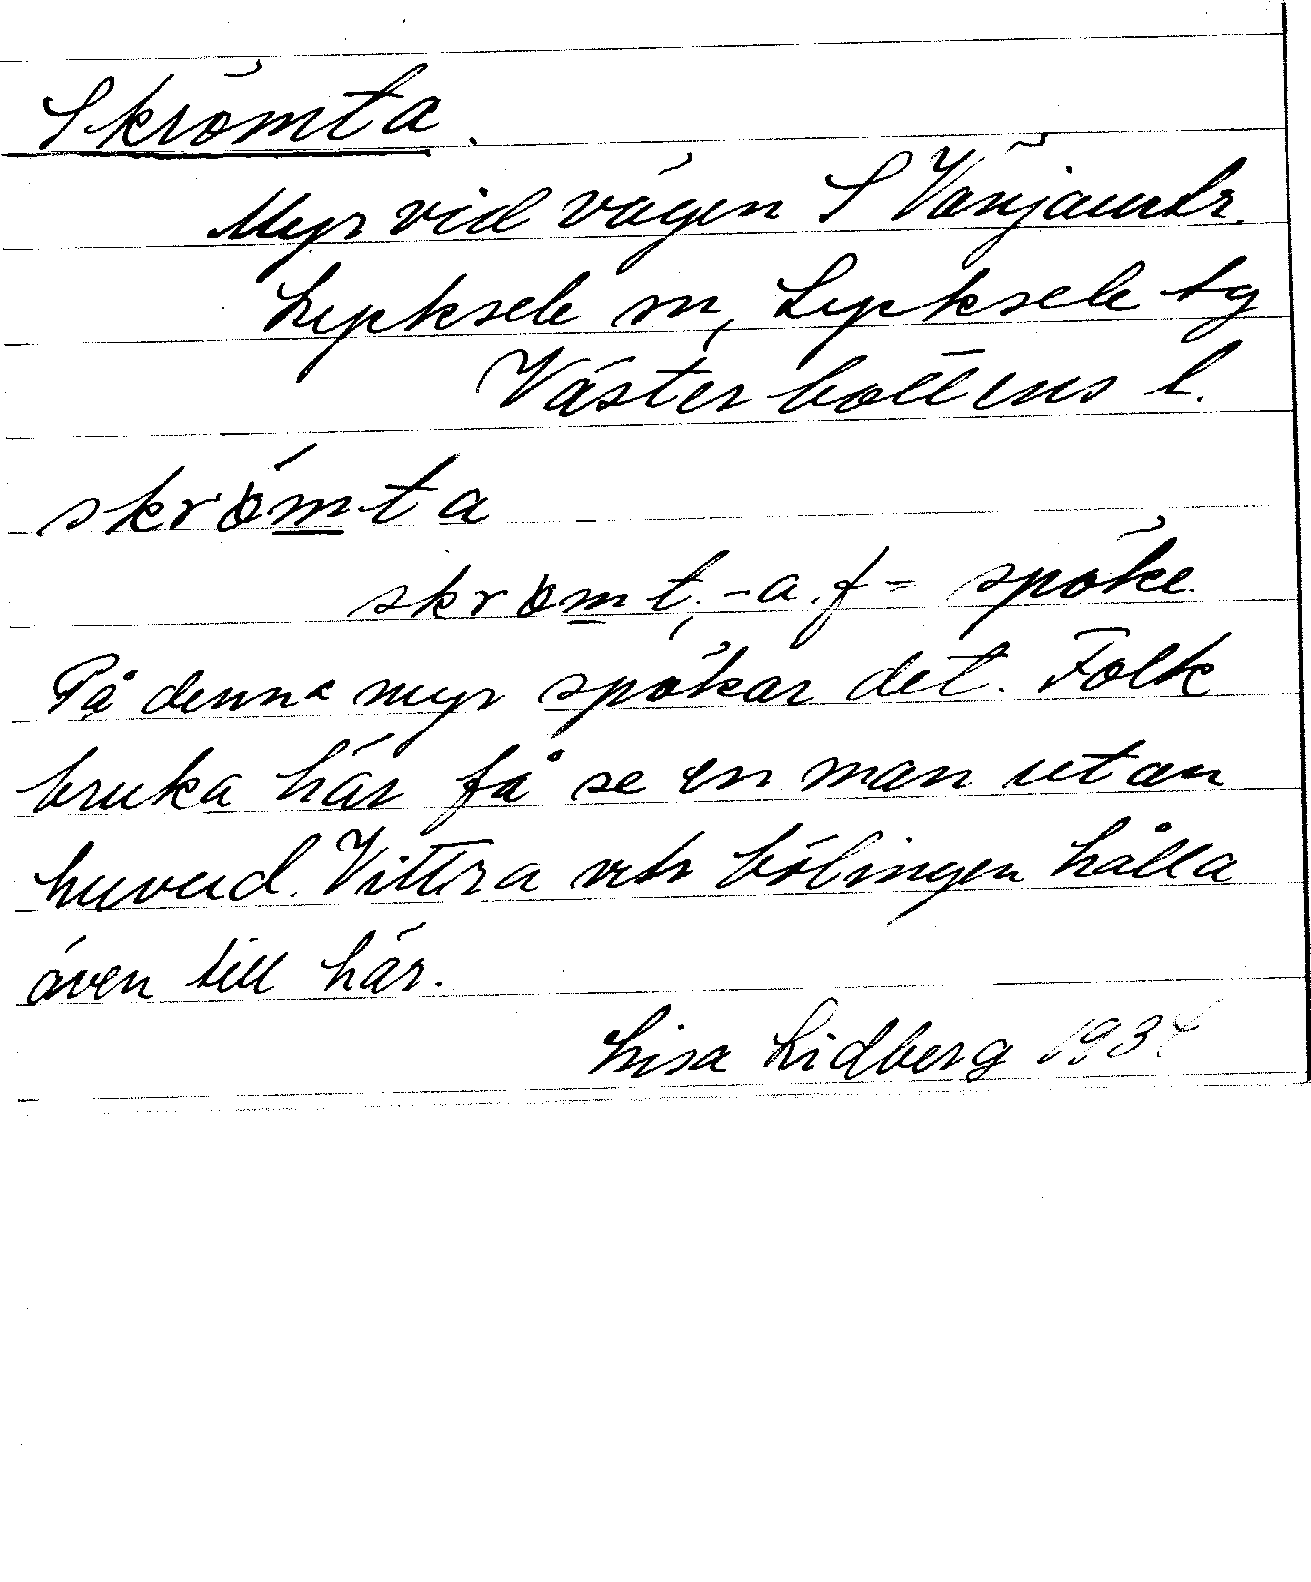 Skrömta.
Myr vid vägen S Vänjaurtr.
Lycksele sn, Lycksele tg
Västerbottens l.
skrömta
skrömt, -a. f = spöke.
På denna myr spökar det. Folk
bruka här få se en man utan
huvud. Vittra och bölingen hålla
även till här.
Lisa Lidberg 1934